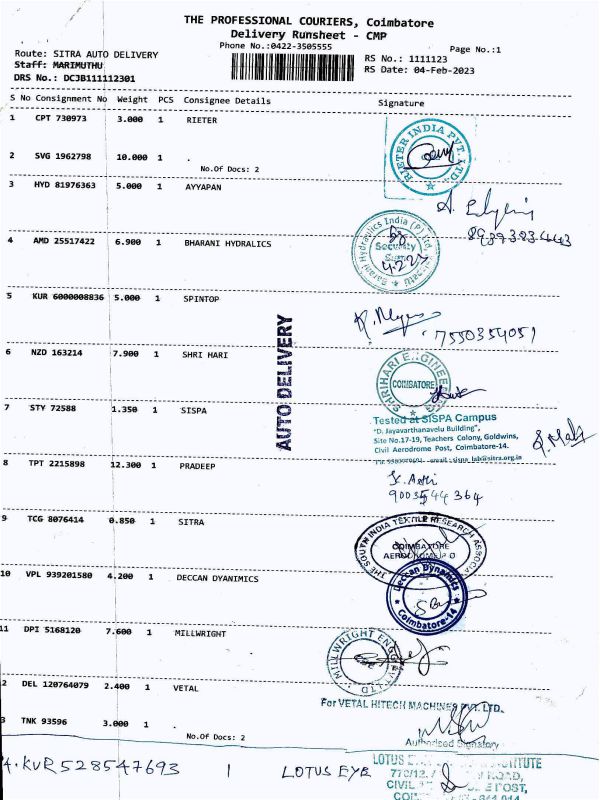 THE PROFESSIONAL COURIERS, Coimbatore
Delivery Runsheet - CMP
Phone No.:0422-3505555
Page No.:1
Route: SITRA AUTO DELIVERY
Staff: MARIMUTHU
DRS No.: DCJB111112301
RS No.: 1111123
RS Date: 04-Feb-2023
S No Consignment No Weight PCS Consignee Details Signature
1 CPT 730973 3.000 1 RIETER
RIETER INDIA PVT. LTD.
2 SVG 1962798 10.000 1 .
No.Of Docs: 2
3 HYD 81976363 5.000 1 AYYAPAN
4 AMD 25517422 6.900 1 BHARANI HYDRALICS
Hydraulics India (P) Ltd,
Security
5 KUR 6000008836 5.000 1 SPINTOP
7550354051
AUTO DELIVERY
6 NZD 163214 7.900 1 SHRI HARI
SHRIHARI ENGINEERING
COIMBATORE
7 STY 72588 1.350 1 SISPA
Tested at SISPA Campus
"D. Jayavarthanavelu Building",
Site No.17-19, Teachers Colony, Goldwins,
Civil Aerodrome Post, Coimbatore-14.
8 TPT 2215898 12.300 1 PRADEEP
9003544364
9 TCG 8076414 0.850 1 SITRA
THE SOUTH INDIA TEXTILE RESEARCH ASSOCIATION
COIMBATORE
AERODROME P O
10 VPL 939201580 4.200 1 DECCAN DYANIMICS
Deccan Dynamics
Coimbatore-14
11 DPI 5168120 7.600 1 MILLWRIGHT
MILLWRIGHT ENGG PVT LTD
2 DEL 120764079 2.400 1 VETAL
For VETAL HITECH MACHINES PVT. LTD.
Authorised Signatory
3 TNK 93596 3.000 1 .
No.Of Docs: 2
4. KUR 528547693 1 LOTUS EYE
LOTUS EYE INSTITUTE
ROAD,
CIVIL POST,